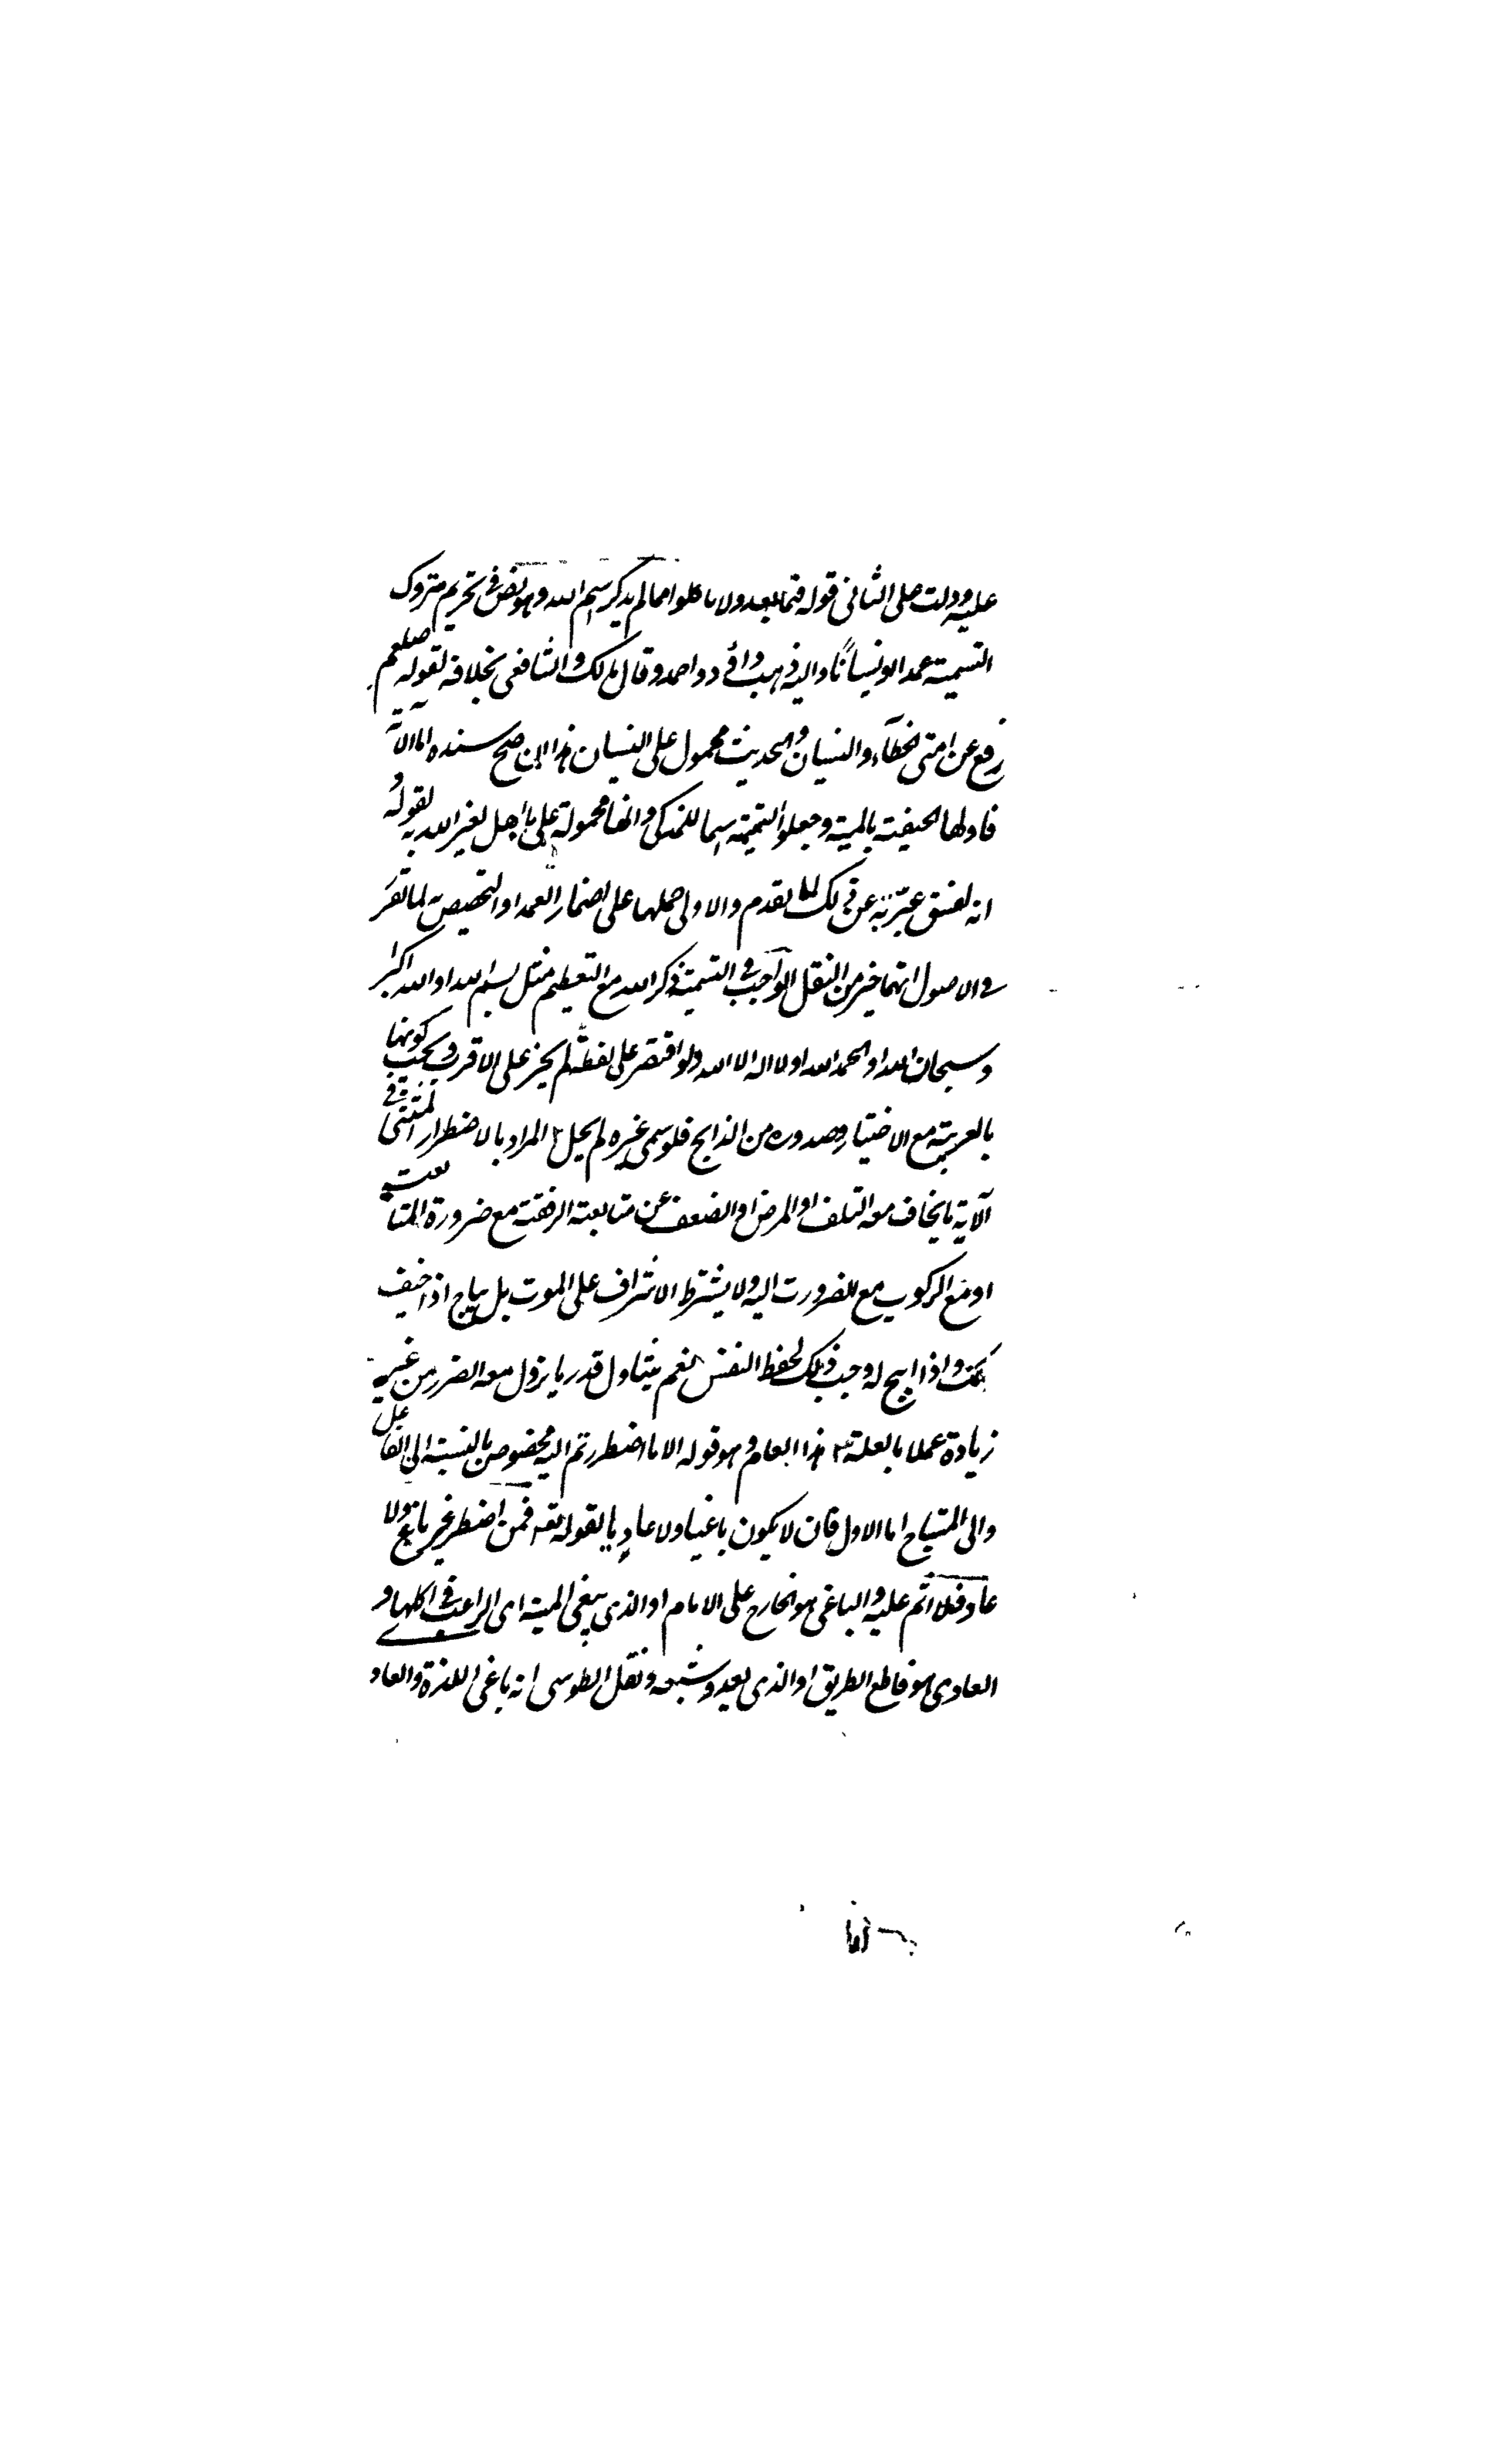 عليه ودلت على الثانى قوله فيما بعد ولا تاكلوا مما لم يذكر اسم الله وهو نص فى تحريم متروك
التسمية عمدا او نسيانًا واليه ذهب داود واحمد وقال مالك والشافعى بخلافه لقوله صلعم
رفع عن امتى الخطاء والنسيان والحديث محمول على النسيان هذا ان صح سنده اما الآية
فاولها الحنيفة بالميتة وجعلوا التسمية اسما للمذكى وانها محمولة على ما اهل لغير الله به لقوله و
انه لفسق عبّر به عن ذلك لما تقدم والاولى حملها على اضمار العمد او التخصيص لما تقرر
فى الاصول انهما خير من النقل الواجب فى التسمية ذكر الله مع التعظيم مثل بسم الله او الله اكبر
وسبحان الله او الحمد لله او لا اله الا الله ولو اقتصر على لفظه لم يجز على الاقرب ويجب كونها
بالعربية مع الاختيار وصدوره من الذابح فلو سمى غيره لم يحل المراد بالاضطرار المستثنى فى
الآية ما يخاف معه التلف او المرض او الضعف عن متابعة الرفقة مع ضرورة المتابعة
او منع الركوب مع الضرورت اليه ولا يشترط الاشراف على الموت بل يباح اذا خيف
ذلك واذا ابيح له وجب ذلك لحفظ النفس نعم يتناول قدر ما يزول معه الضرر من غير
زيادة عملا بالعلة هذا العام وهو قوله الا ما اضطررتم اليه مخصوص بالنسبة الى الفاعل
والى المستباح اما الاول فان لا يكون باغيا ولا عاديا لقوله تعه فمن اضطر غير باغ ولا
عاد فلا اثم عليه والباغى هو الخارج على الامام او الذى يبغى الميتة اى الراغب فى اكلها و
العادى هو قاطع الطريق او الذى يعدو شبعه ونقل الطوسى انه باغى اللذة والعاد